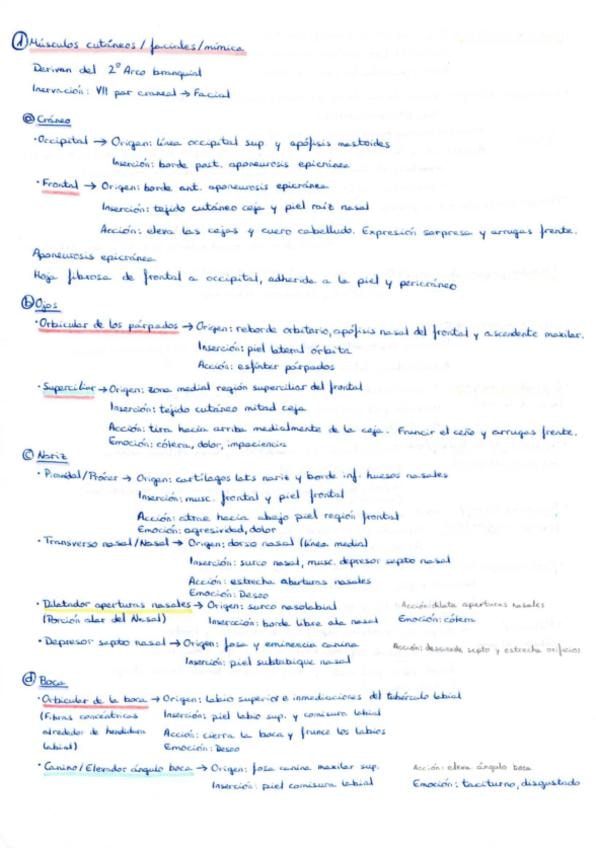 ① Músculos cutáneos/faciales/mímica
Derivan del 2º Arco branquial
Inervación: VII par craneal → Facial
ⓐ Cráneo
· Occipital → Origen: línea occipital sup. y apófisis mastoides
Inserción: borde post. aponeurosis epicránea
· Frontal → Origen: borde ant. aponeurosis epicránea
Inserción: tejido cutáneo ceja y piel raíz nasal
Acción: eleva las cejas y cuero cabelludo. Expresión sorpresa y arrugas frente.
Aponeurosis epicránea
Hoja fibrosa de frontal a occipital, adherida a la piel y pericráneo
ⓑ Ojos
· Orbicular de los párpados → Origen: reborde orbitario, apófisis nasal del frontal y ascendente maxilar.
Inserción: piel lateral órbita
Acción: esfínter párpados
· Superciliar → Origen: zona medial región superciliar del frontal
Inserción: tejido cutáneo mitad ceja
Acción: tira hacia arriba medialmente de la ceja. Fruncir el ceño y arrugas frente.
Emoción: cólera, dolor, impaciencia
ⓒ Nariz
· Piramidal/Prócer → Origen: cartílagos lats nariz y borde inf. huesos nasales
Inserción: musc. frontal y piel frontal
Acción: atrae hacia abajo piel región frontal
Emoción: agresividad, dolor
· Transverso nasal/Nasal → Origen: dorso nasal (línea media)
Inserción: surco nasal, musc. depresor septo nasal
Acción: estrecha aberturas nasales
Emoción: Deseo
· Dilatador aperturas nasales → Origen: surco nasolabial Acción: dilata aperturas nasales
(Porción alar del Nasal) Inserción: borde libre ala nasal Emoción: cólera
· Depresor septo nasal → Origen: fosa y eminencia canina Acción: desciende septo y estrecha orificios
Inserción: piel subtabique nasal
ⓓ Boca
· Orbicular de la boca → Origen: labio superior e inmediaciones del tubérculo labial
(Fibras concéntricas Inserción: piel labio sup. y comisura labial
alrededor de hendidura Acción: cierra la boca y frunce los labios
labial) Emoción: Deseo
· Canino/Elevador ángulo boca → Origen: fosa canina maxilar sup. Acción: eleva ángulo boca
Inserción: piel comisura labial Emoción: taciturno, disgustado